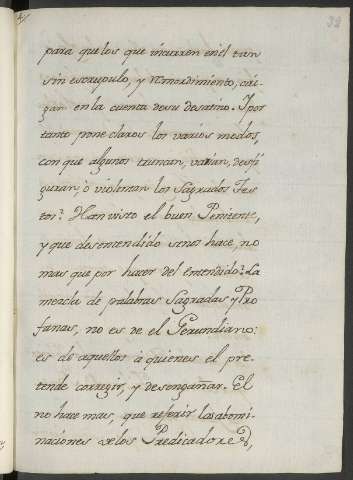 32
para que los que incurren en èl tan
sin escrupulo, y remordimiento, cai-
gan en la cuenta desu desatino. I por
tanto pone claros los varios modos,
con que algunos truncan, varian, desfi
guran, ò violentan los Sagrados Tes
tos? Han visto el buen Penitente,
y que desentendido senos hace, no
mas que por hacer del entendido? La
mezcla de palabras Sagradas y Pro
fanas, no es de el Gerundiario:
es de aquellos à quienes el pre-
tende corregir, y desengañar. El
no hace mas, que referir las abomi-
naciones delos Predicadores,